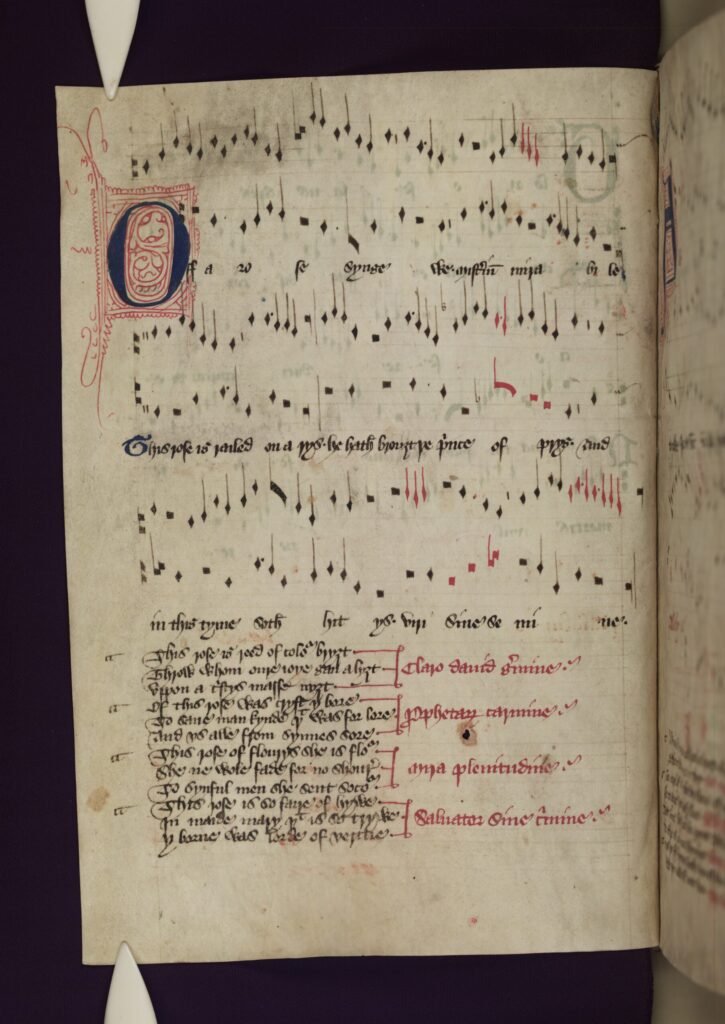 Off a ro se synge we misteriū mira bi le
This rose is railed on a rys he hath brouȝt þe prince of prys And
in this tyme soth hit ys viri sine se mi ne
This rose is reed of colour bryȝt
Throw whom oure ioye gan a lyȝt
Uppon a cristys masse nyȝt
Claro david germine
Of this rose was cryst y bore
To save man kynde þt was for lore
And us alle from synnes sore
Prophetarum carmine
This rose of flourys she is flour
She ne wole fade for no shour
To synful men she sent socour
Mira plenitudine
This rose is so faire of hywe
In maide mary þt is so trywe
y borne was lorde of vertue
Salvator sine crimine